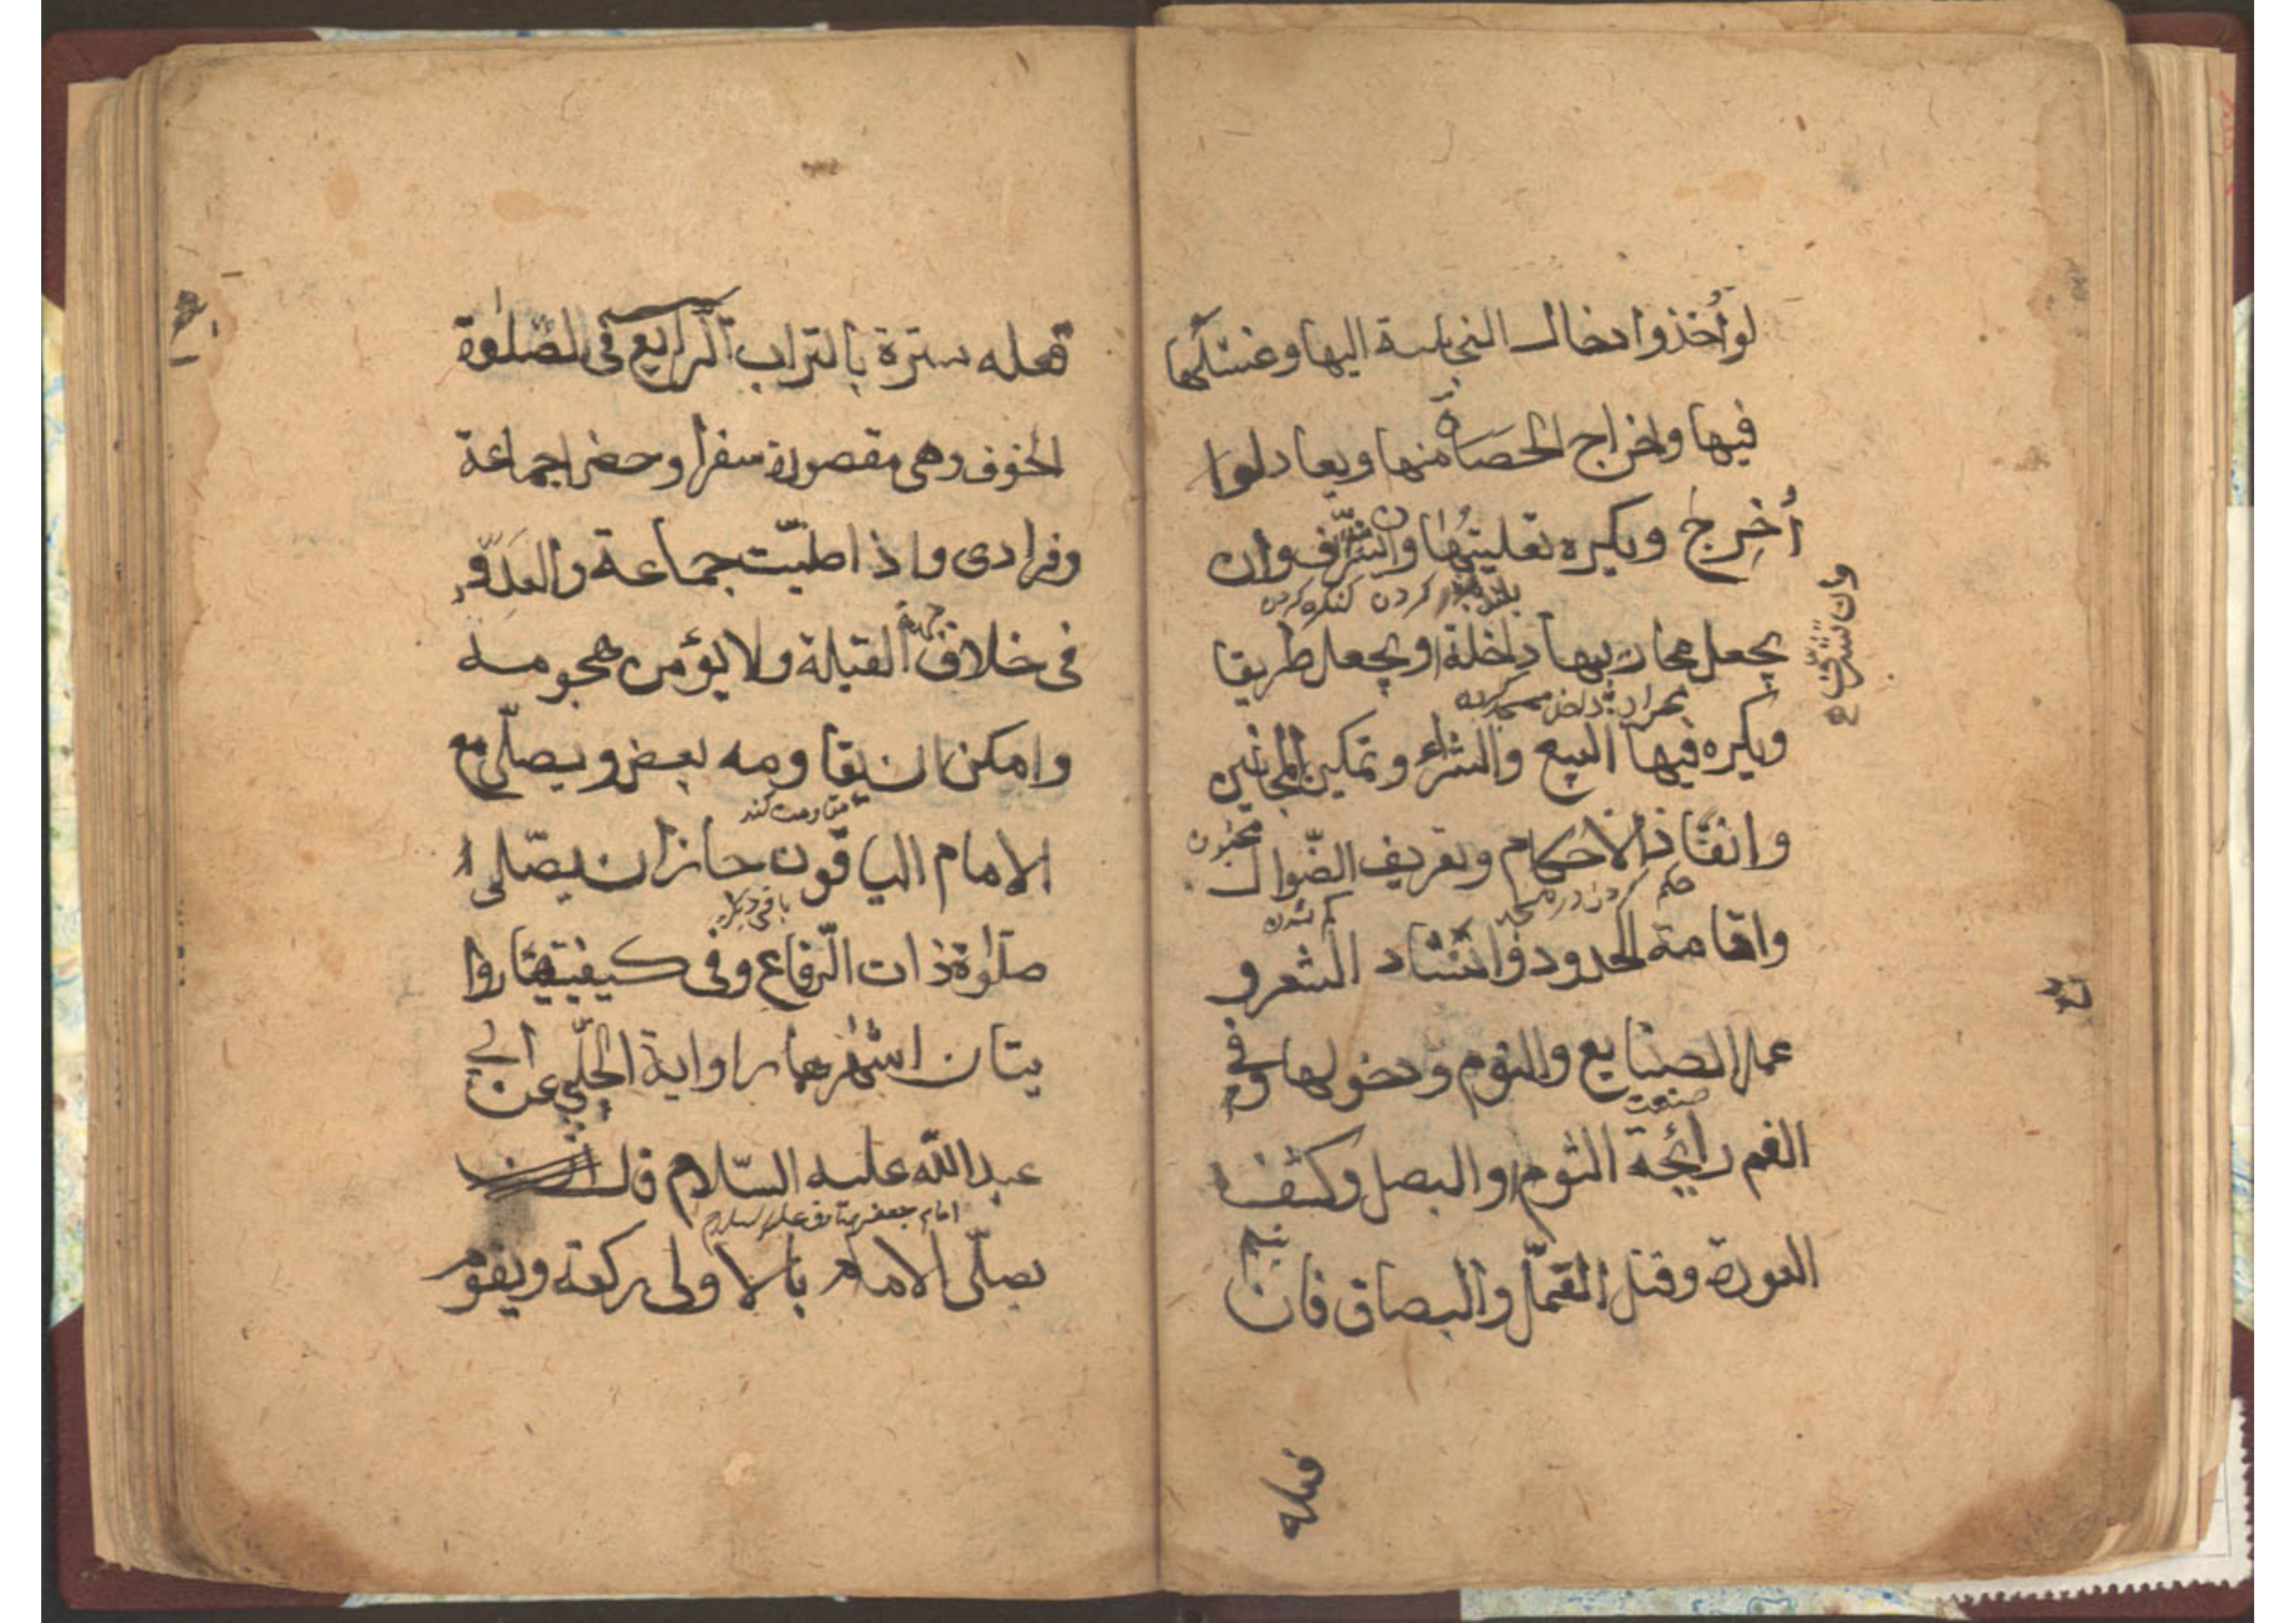 لو أخذ وادخال النجاسة اليها وغسلها
فيها واخراج الحصاة منها ويعاد لوا
أخرج ويكره تعليتها وان تشرّف وان
بلند كردن كنكره كردن
وان تشرّف
يجعل محاريبها داخلة او يجعل طريقا
ويكره فيها البيع والشراء وتمكين المجانين
مجنون
وانفاذ الاحكام وتعريف الضّوال
حكم كردن در مسجد
كم شده
واقامة الحدود وانشاد الشعر و
عمل الصنايع والنوم ودخولها وفى
صنعت
الفم رائحة الثوم او البصل وكشف
العورة وقتل القمّل والبصاق فان
فعله
فعله ستره بالتراب الرّابع فى الصّلوة
الخوف وهى مقصورة سفرا وحضرا جماعة
وفرادى واذا صلّيت جماعة والعدوّ
فى خلاف جهة القبلة ولا يؤمن هجومه
وامكن ان يقاومه بعض ويصلّى مع
مقاومت كند
الامام الباقون جاز ان يصلّى ا
باقى ديكر
صلوة ذات الرّقاع وفى كيفيتها روا
يتان اشهرهما رواية الحلبّى عن ابى
عبد اللّه عليه السّلام قال
امام جعفر صادق عليه السلام
يصلّى الامام بالاولى ركعة ويقوم